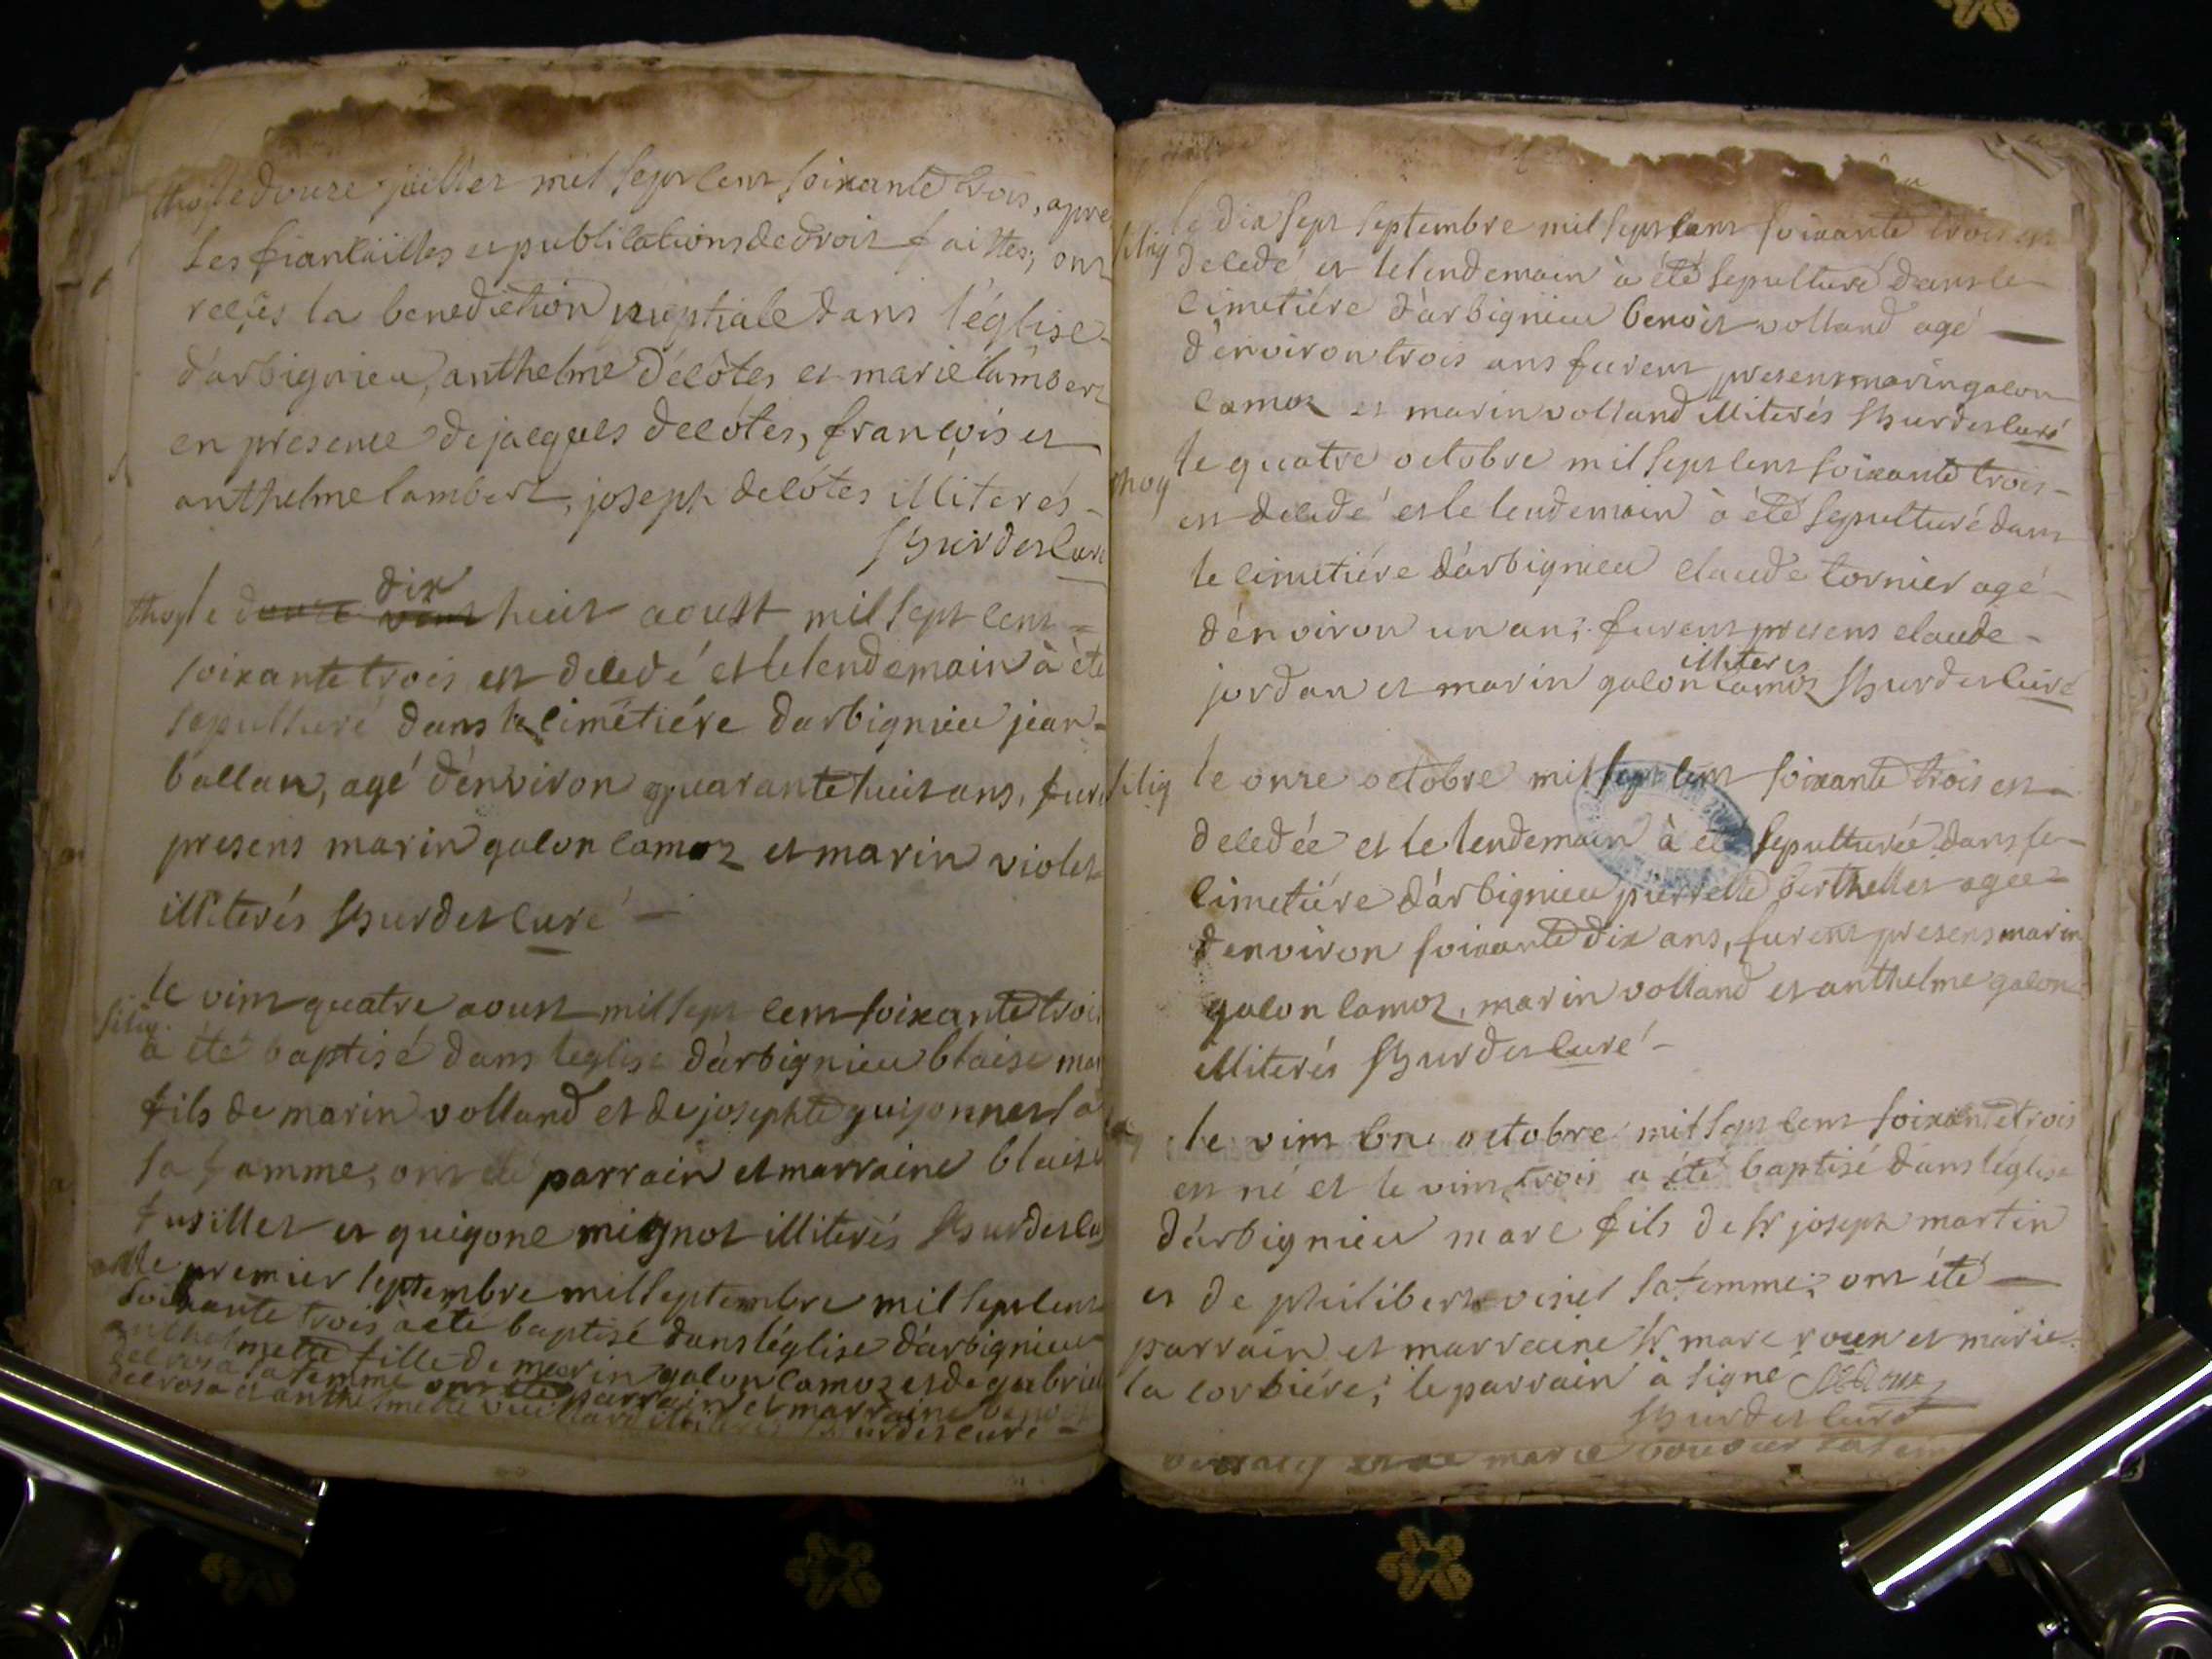 thoy le douze juillet mil sept cent soixante trois, apre
les fiancailles et publications de droit faittes; ont
reçûs la benediction nuptiale dans l'église
d'arbignieu, anthelme décôtes et marie lambert
en presence de jacques decôtes, françois et
anthelme lambert, joseph decôtes illiterés
Burdet curé
dix
thoy le douze vint huit aoust mil sept cent
soixante trois est decedé et le lendemain à été
sepulturé dans le cimétiére darbignieu jean
ballan, agé d'environ quarante huit ans, fure
presens marin galon camoz et marin violet
illiterés Burdet curé
le vint quatre aoust mil sept cent soixante trois
silig.
a été baptisé dans leglise d'arbignieu blaise mar
fils de marin volland et de josephte guijonnet sa
sa famme, ont été parrain et marraine blaise
fusillet et guigone mignot illiterés Burdet cu
le premier septembre mil septembre mil sept cent
soixante trois à été baptisé dans l'église d'arbignieu
anthelmette fille de marin galon camoz et de gabrie
delrosa sa femme ont été parrain et marraine benoit
delrosa et anthelmette illiterés Burdet curé
le dix sept septembre mil sept cent soixante trois est
silig
decedé et le lendemain à été sepulturé dans le
cimetiére d'arbignieu benoit volland agé
d'environ trois ans furent presens marin galon
camoz et marin volland illiterés Burdet curé
le quatre octobre mil sept cent soixante trois
thoy
est decedé et le lendemain à été sepulturé dans
le cimetiére d'arbignieu claude tornier agé
d'environ un an; furent presens claude
illiteres
jordan et marin galon camoz Burdet curé
silig le onze octobre mil sept cent soixante trois est
decedée et le lendemain à été sepulturée dans le
cimetiére d'arbignieu pierrette berthellet agée
d'environ soixante dix ans, furent presens marin
galon camoz, marin volland et anthelme galon
illiterés Burdet curé
le vint un octobre mil sept cent soixante trois
est né et le vint trois a été baptisé dans léglise
d'arbignieu marc fils de sr joseph martin
et de philiberte vinet sa femme; ont été
parrain et marraine sr marc roux et marie
la corbiére; le parrain à signé
Burdet curé
marie